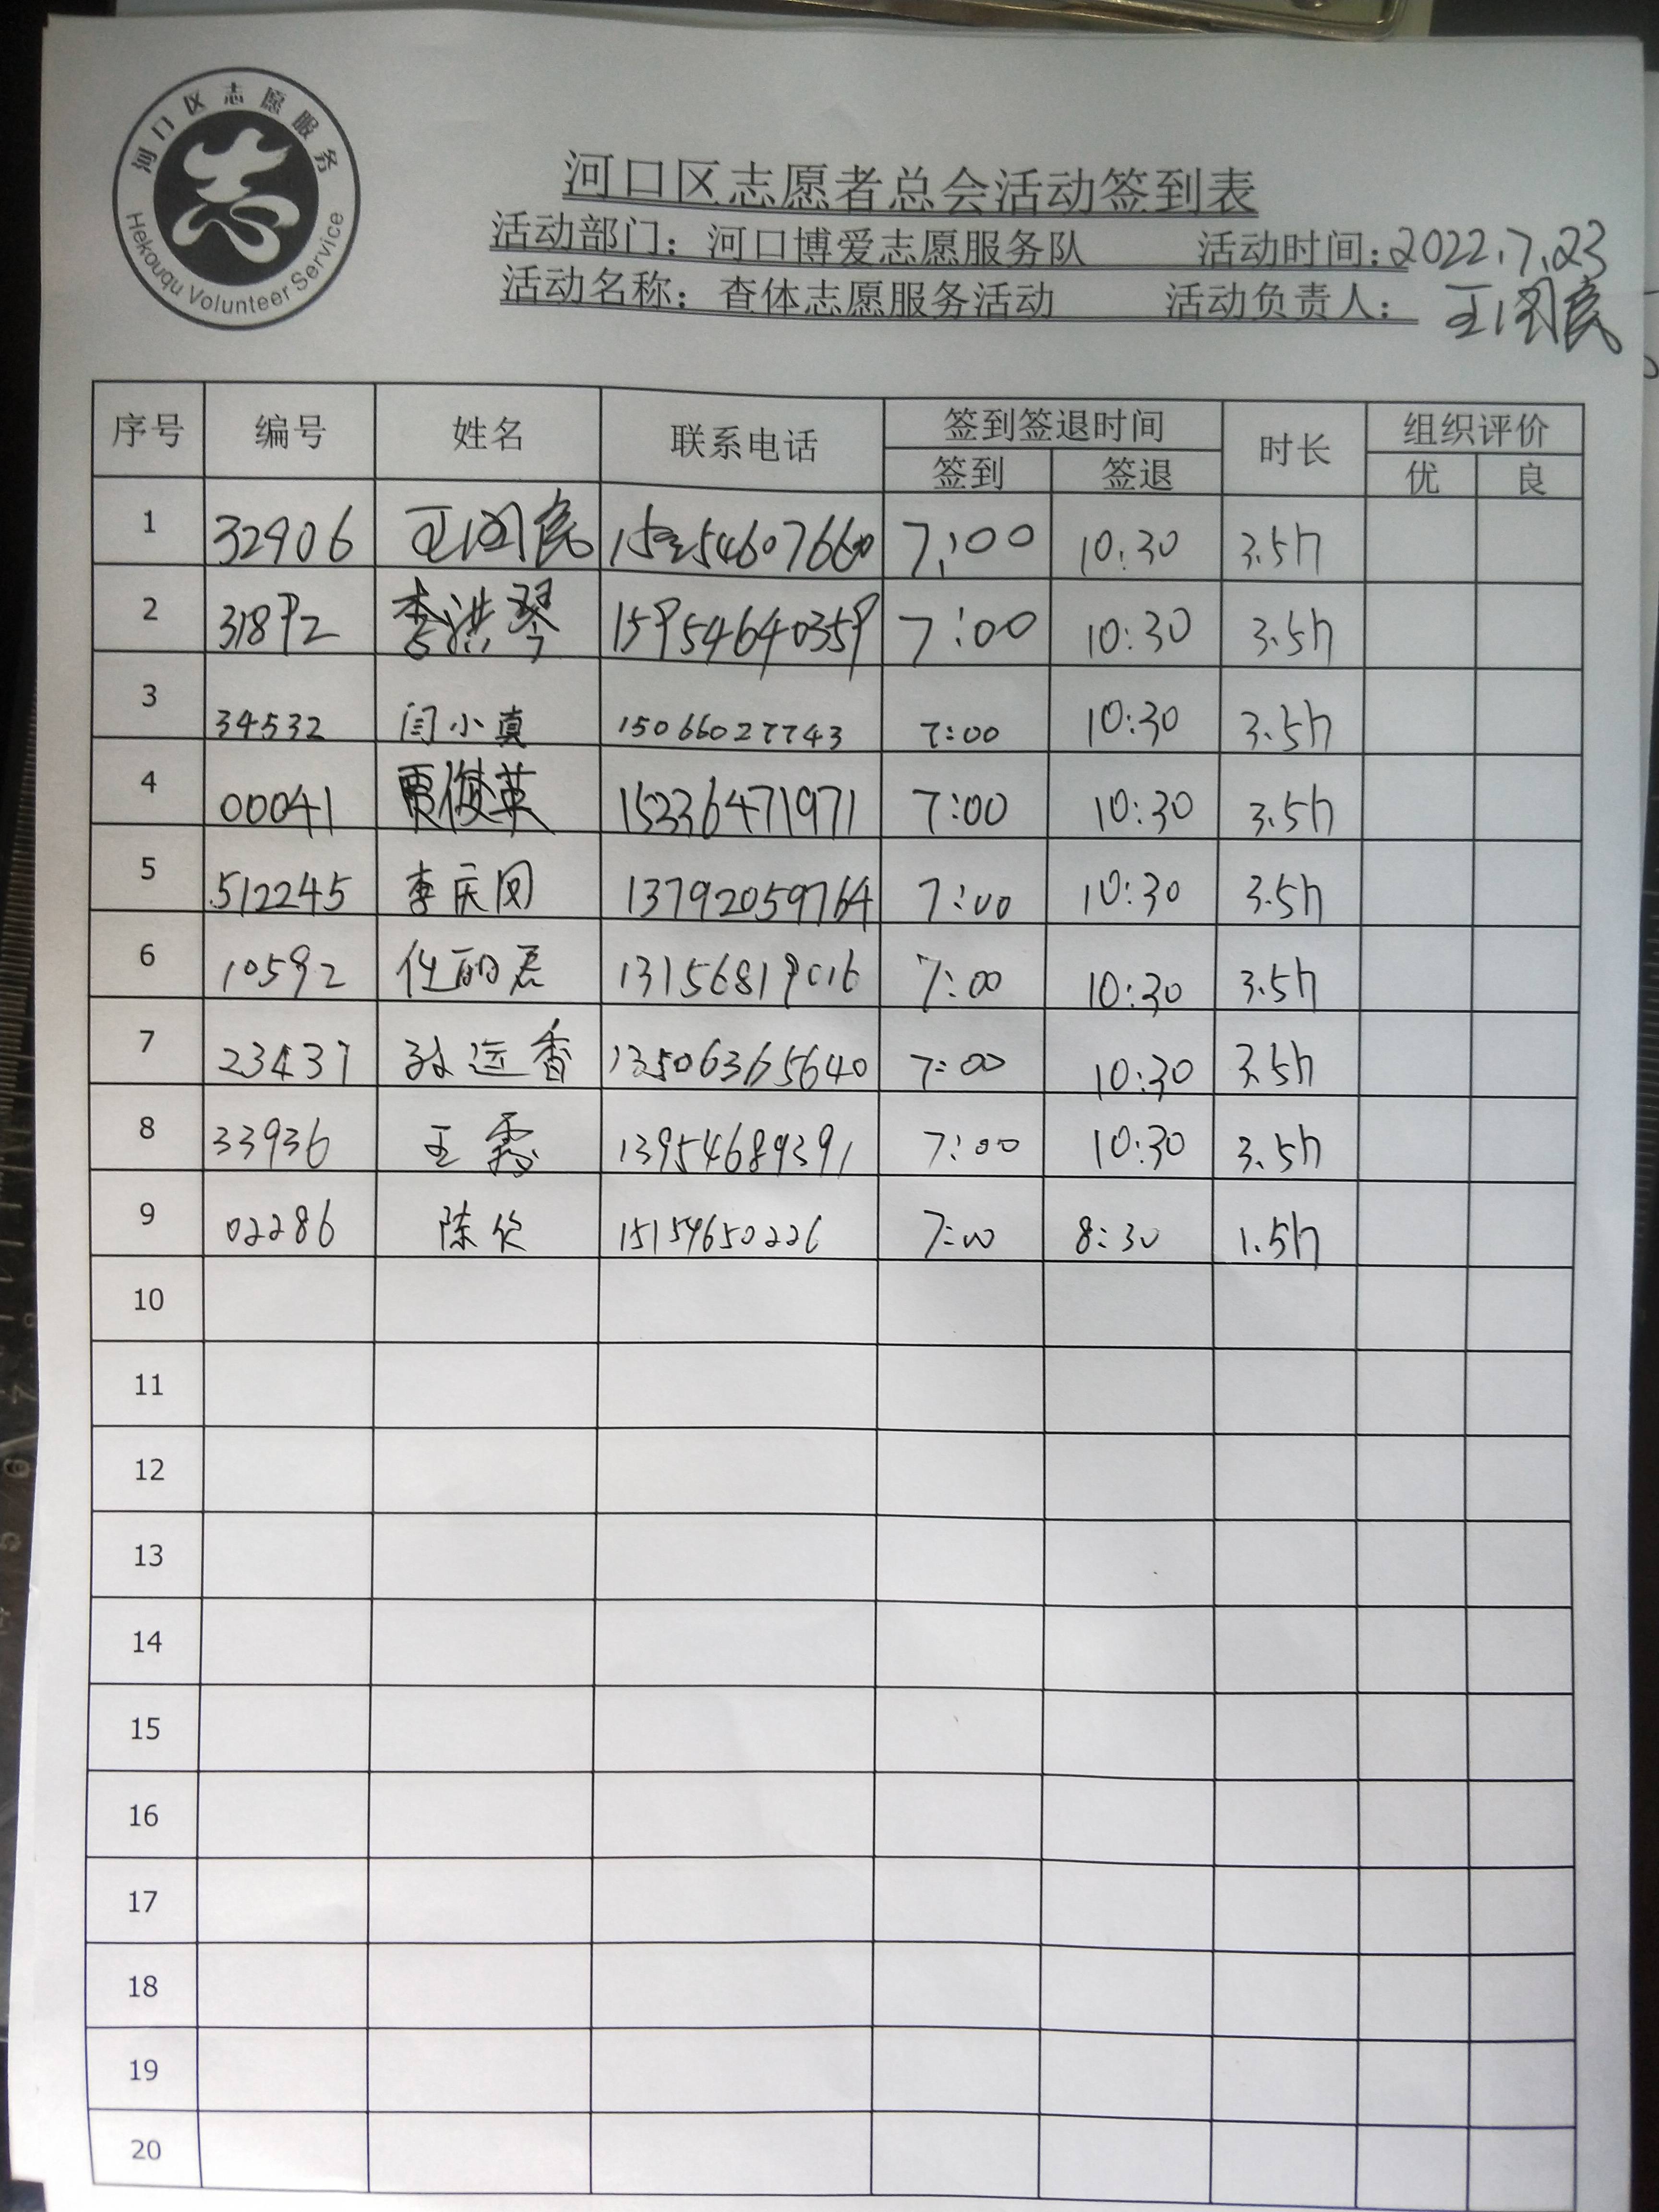 河口区志愿服务
Hekouqu Volunteer Service
河口区志愿者总会活动签到表
活动部门：河口博爱志愿服务队 活动时间：2022.7.23
活动名称：查体志愿服务活动 活动负责人：
序号 编号 姓名 联系电话 签到签退时间 时长 组织评价
签到 签退 优 良
1 32906 7:00 10:30 3.5h
2 31892 李洪琴 15954640359 7:00 10:30 3.5h
3 34532 闫小真 15066027743 7:00 10:30 3.5h
4 00041 贾俊英 15236471971 7:00 10:30 3.5h
5 512245 李庆 13792059764 7:00 10:30 3.5h
6 10592 任丽君 13156819016 7:00 10:30 3.5h
7 23437 孙运香 13506365640 7:00 10:30 3.5h
8 33936 王霞 13954689391 7:00 10:30 3.5h
9 02286 陈 15154650226 7:00 8:30 1.5h
10
11
12
13
14
15
16
17
18
19
20